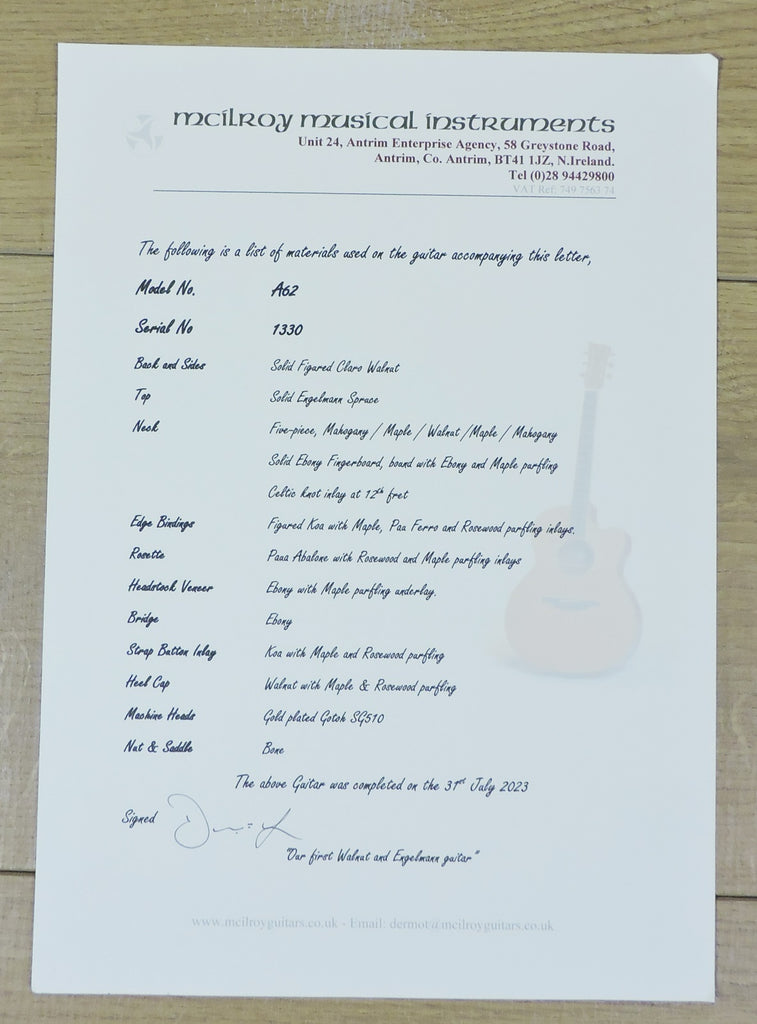 mcilroy musical instruments
Unit 24, Antrim Enterprise Agency, 58 Greystone Road,
Antrim, Co. Antrim, BT41 1JZ, N.Ireland.
Tel (0)28 94429800
VAT Ref: 749 7563 74
The following is a list of materials used on the guitar accompanying this letter,
Model No. A62
Serial No 1330
Back and Sides Solid Figured Claro Walnut
Top Solid Engelmann Spruce
Neck Five-piece, Mahogany / Maple / Walnut /Maple / Mahogany
Solid Ebony Fingerboard, bound with Ebony and Maple purfling
Celtic knot inlay at 12th fret
Edge Bindings Figured Koa with Maple, Pau Ferro and Rosewood purfling inlays.
Rosette Paua Abalone with Rosewood and Maple purfling inlays
Headstock Veneer Ebony with Maple purfling underlay.
Bridge Ebony
Strap Button Inlay Koa with Maple and Rosewood purfling
Heel Cap Walnut with Maple & Rosewood purfling
Machine Heads Gold plated Gotoh SG510
Nut & Saddle Bone
The above Guitar was completed on the 31st July 2023
Signed
"Our first Walnut and Engelmann guitar"
www.mcilroyguitars.co.uk - Email: dermot@mcilroyguitars.co.uk